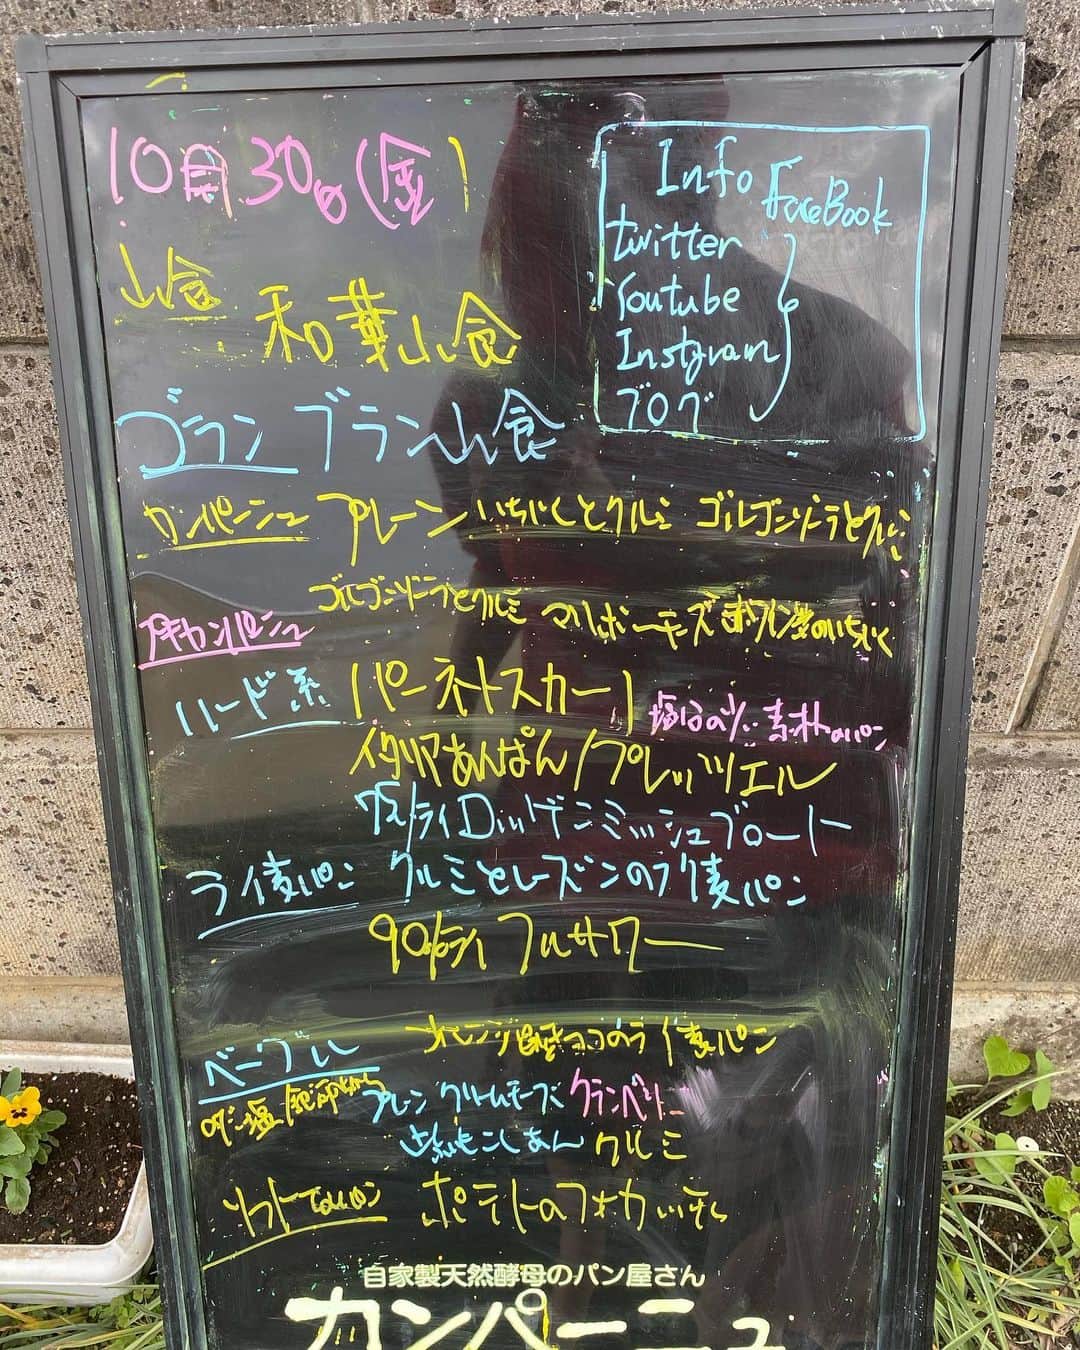 10月30日(金)
Info
FaceBook
twitter
Youtube
Instgram
ブログ
山食
和華山食
ゴラン ブラン山食
カンパーニュ プレーン いちじくとクルミ ゴルゴンゾーラとクルミ
ゴルゴンゾーラとクルミ
プチカンパーニュ
マルボーチーズ 赤ワイン煮のいちじく
ハード系 パーネトスカーノ
素朴のパン
イタリアあんぱん/プレッツェル
75%ライロッゲンミッシュブロート
ライ麦パン クルミとレーズンのライ麦パン
90%ライ フルサワー
オレンジ
ココのライ麦パン
ベーグル
プレーン クリームチーズ クランベリー
こしあん クルミ
ソフト
ポテトのフォカッチャ
自家製天然酵母のパン屋さん
カンパーニュ